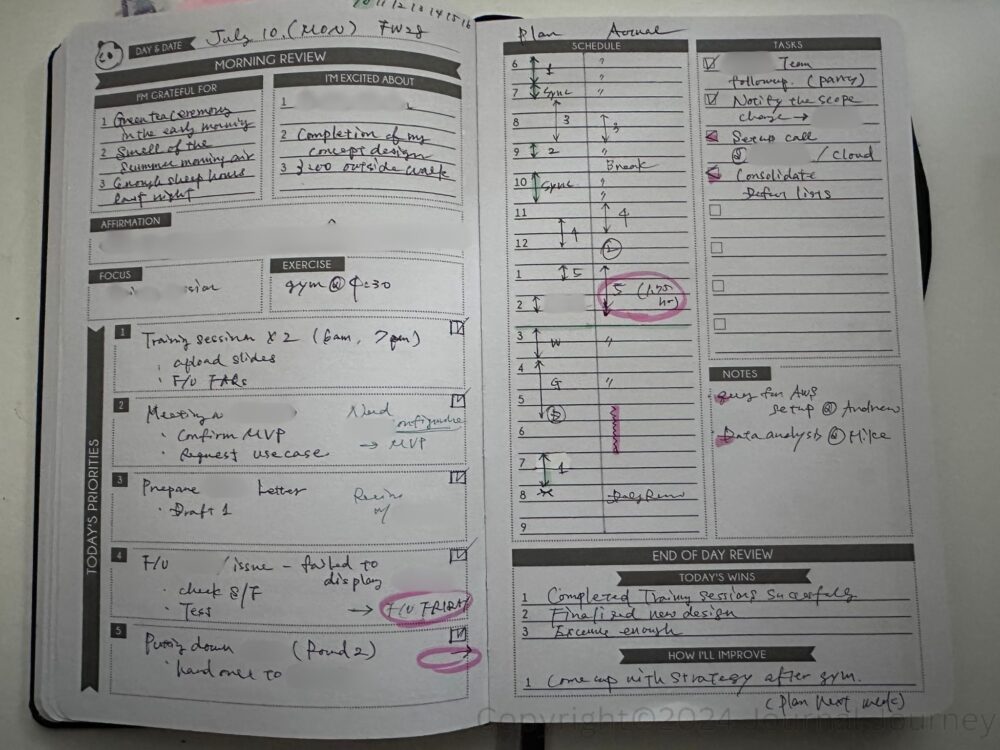 10 11 12 13 14 15 16
DAY & DATE July 10. (MON) FW28
MORNING REVIEW
I'M GRATEFUL FOR
1 Green tea ceremony
in the early morning
2 Smell of the
summer morning air
3 Enough sleep hours
last night
I'M EXCITED ABOUT
1
2 Completion of my
concept design
3 outside walk
AFFIRMATION
FOCUS
EXERCISE
gym @ 4:30
TODAY'S PRIORITIES
1 Training session x 2 (6am, 7pm)
· upload slides
· F/U FAQs
2 Meeting
· Confirm MVP
· Request use case
Need
configure
→ MVP
3 Prepare Letter
· Draft 1
w/
4 F/U /issue - failed to
display
· check S/F
· Test → F/U FRIDAY
5 Putting down (Round 2)
· hand over to →
Plan Actual
SCHEDULE
6 1 "
7 Sync "
8 3 3
9 2 "
Break
10 Sync "
"
11 4
12 4 2
1 5 5 (1.75
2 hr)
3 W "
4 G "
5 $
6
7 1
8
9
TASKS
Team
followup. (party)
Notify the scope
change →
Setup call
@ / Cloud
Consolidate
Defect lists
NOTES
· query for AWS
setup @ Andrew
· Data analysis @ Mike
END OF DAY REVIEW
TODAY'S WINS
1 Completed Training sessions successfully
2 Finalized new design
3 Exercise enough
HOW I'LL IMPROVE
1 Come up with strategy after gym.
(plan next week)
Copyright©2024 Journal Journey